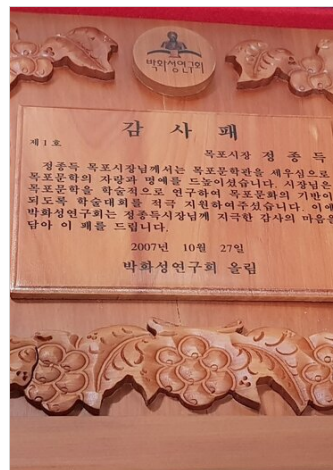 박화성연구회
감 사 패
제1호
목포시장 정 종 득
정종득 목포시장님께서는 목포문학관을 세우심으로
목포문학의 자랑과 명예를 드높이셨습니다. 시장님은
목포문학을 학술적으로 연구하여 목포문화의 기반이
되도록 학술대회를 적극 지원하여주셨습니다. 이에
박화성연구회는 정종득시장님께 지극한 감사의 마음을
담아 이 패를 드립니다.
2007년 10월 27일
박화성연구회 올림